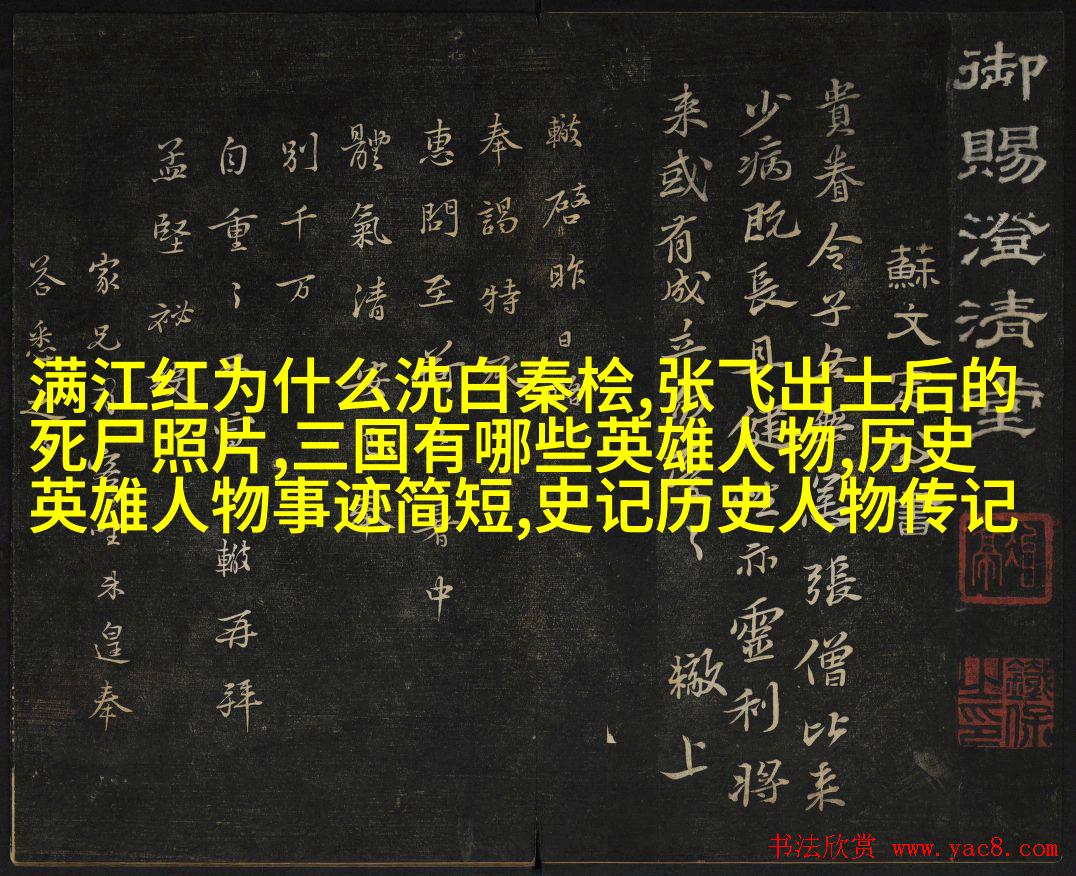 满江红为什么洗白秦桧,张飞出土后的
死尸照片,三国有哪些英雄人物,历史
英雄人物事迹简短,史记历史人物传记
御賜澄清堂
蘇文
貴眷令子各無恙張僧比来
少病既長且健性亦靈利將
来或有成立
轍上
轍啓昨日
奉謁特
惠問至
中
體氣清
别千万
自重
轍再拜
孟堅祕
家兄
未遑奉
答悉
书法欣赏 www.yac8.com